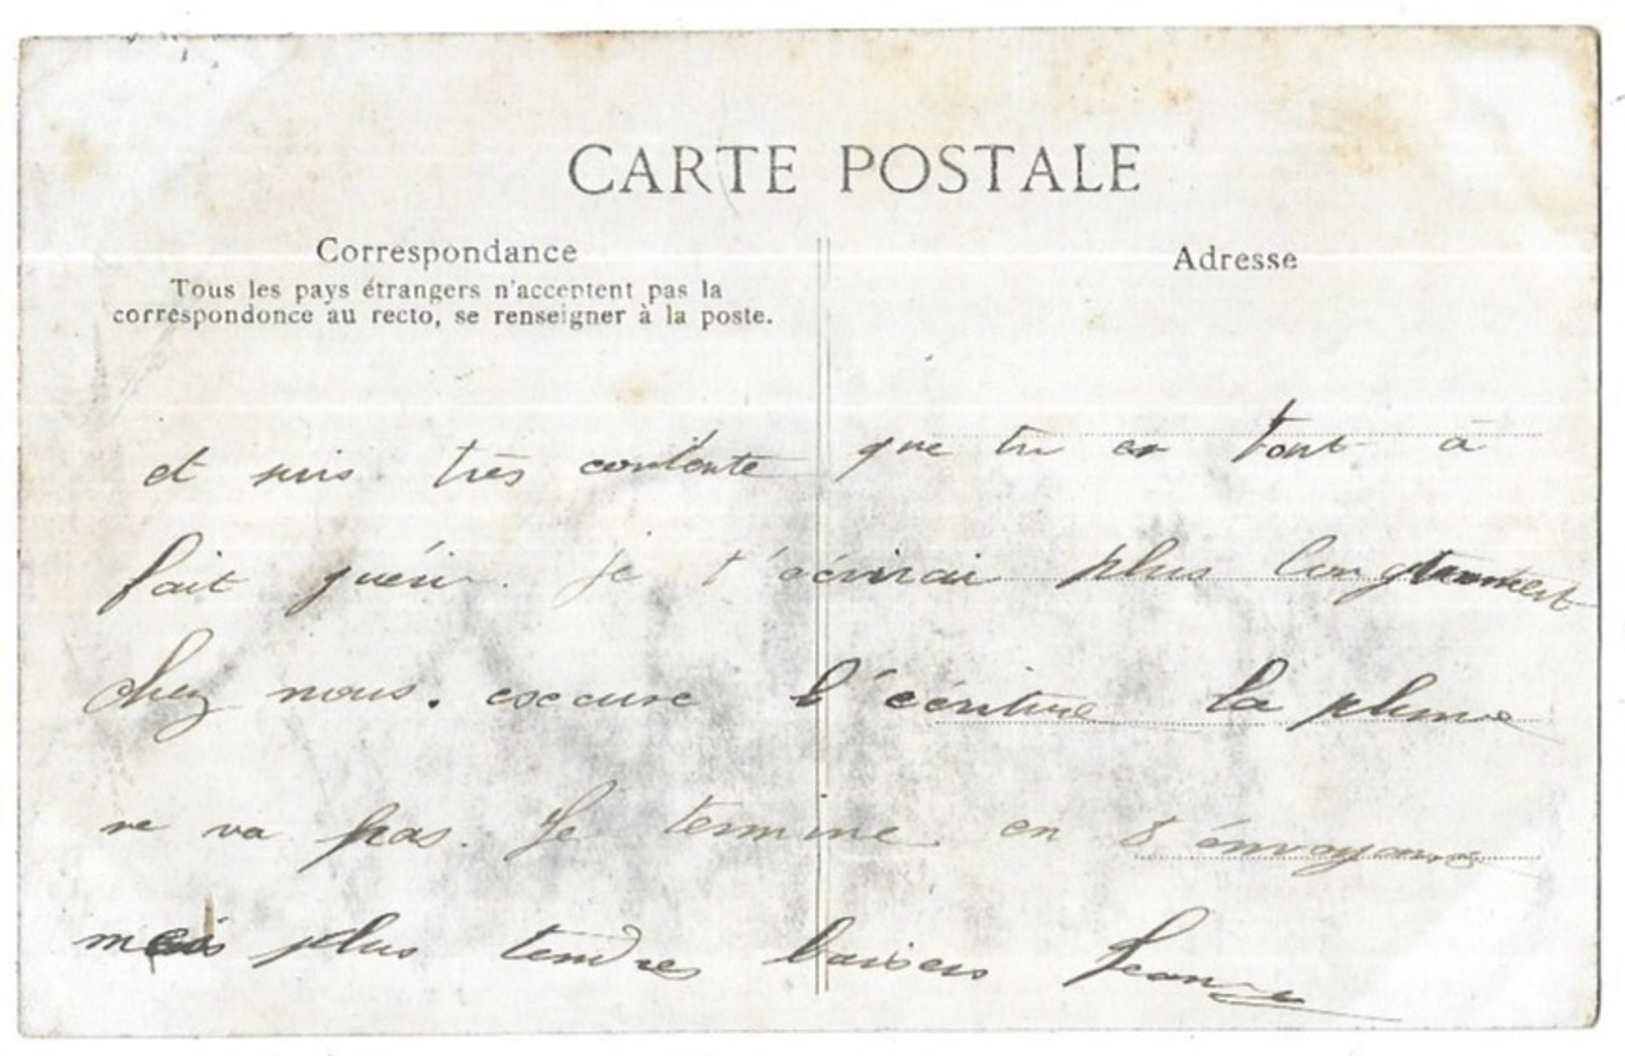 CARTE POSTALE
Correspondance
Tous les pays étrangers n'acceptent pas la
correspondonce au recto, se renseigner à la poste.
Adresse
et suis très contente que tu es tout à
fait guéri. je t'écrirai plus longtement
chez nous. exccuse l'écriture la plume
ne va pas. Je termine en t'envoyant
mes plus tendres baisers Jeanne